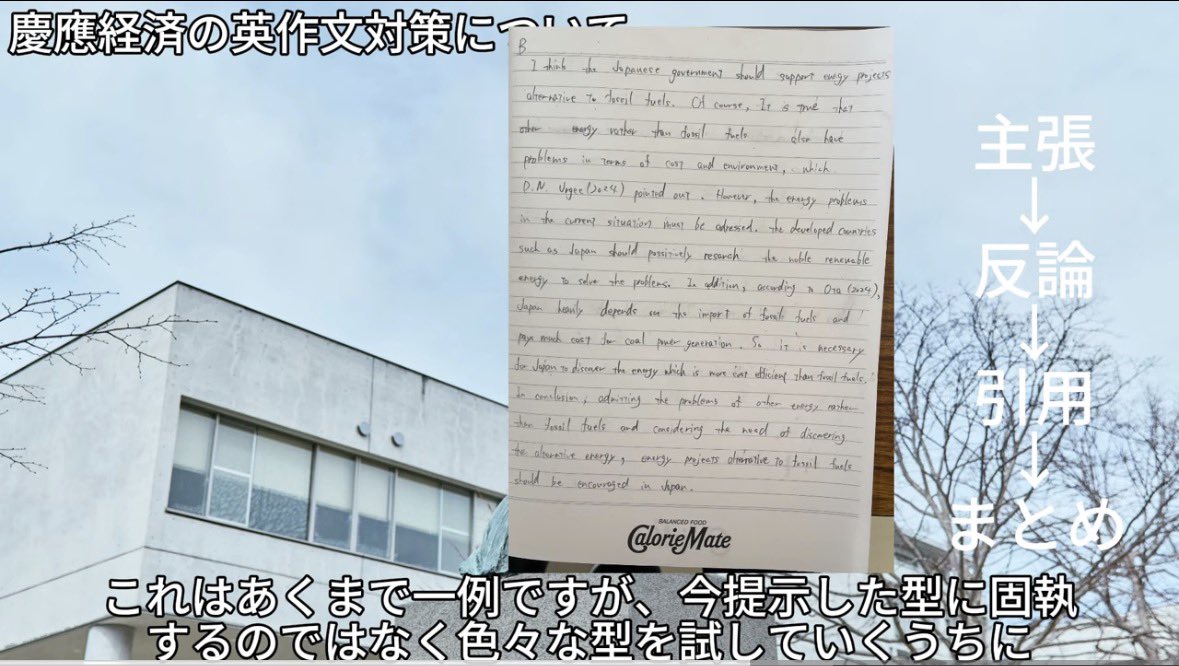 慶應経済の英作文対策について
B
I think the Japanese government should support enegy projects
alternative to fossil fuels. Of course, It is true that
other energy rather than fossil fuels also have
problems in terms of cost and environment, which
D.N. Urgee (2024) pointed out. However, the energy problems
in the current situation must be adressed. the developed countries
such as Japan should possitively research the noble renewable
energy to solve the problems. In addition, according to Ota (2024),
Japan heavily depends on the import of fossil fuels and
pays much cost for coal power generation. So it is necessary
for Japan to discover the energy which is more cost efficient than fossil fuels.
In conclusion, admitting the problems of other energy rather
than fossil fuels and considering the need of discovering
the alternative energy, energy projects alternative to fossil fuels
should be encouraged in Japan.
BALANCED FOOD
CalorieMate
主張
↓
反論
↓
引用
↓
まとめ
これはあくまで一例ですが、今提示した型に固執
するのではなく色々な型を試していくうちに